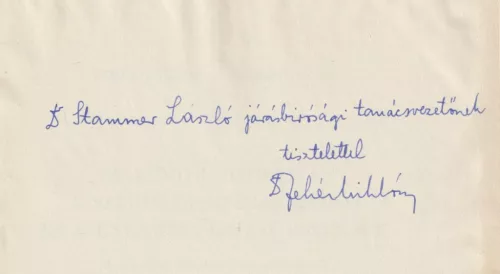 Dr Stammer László járásbirósági tanácsvezetőnek
tisztelettel
Dr Fehér Miklós